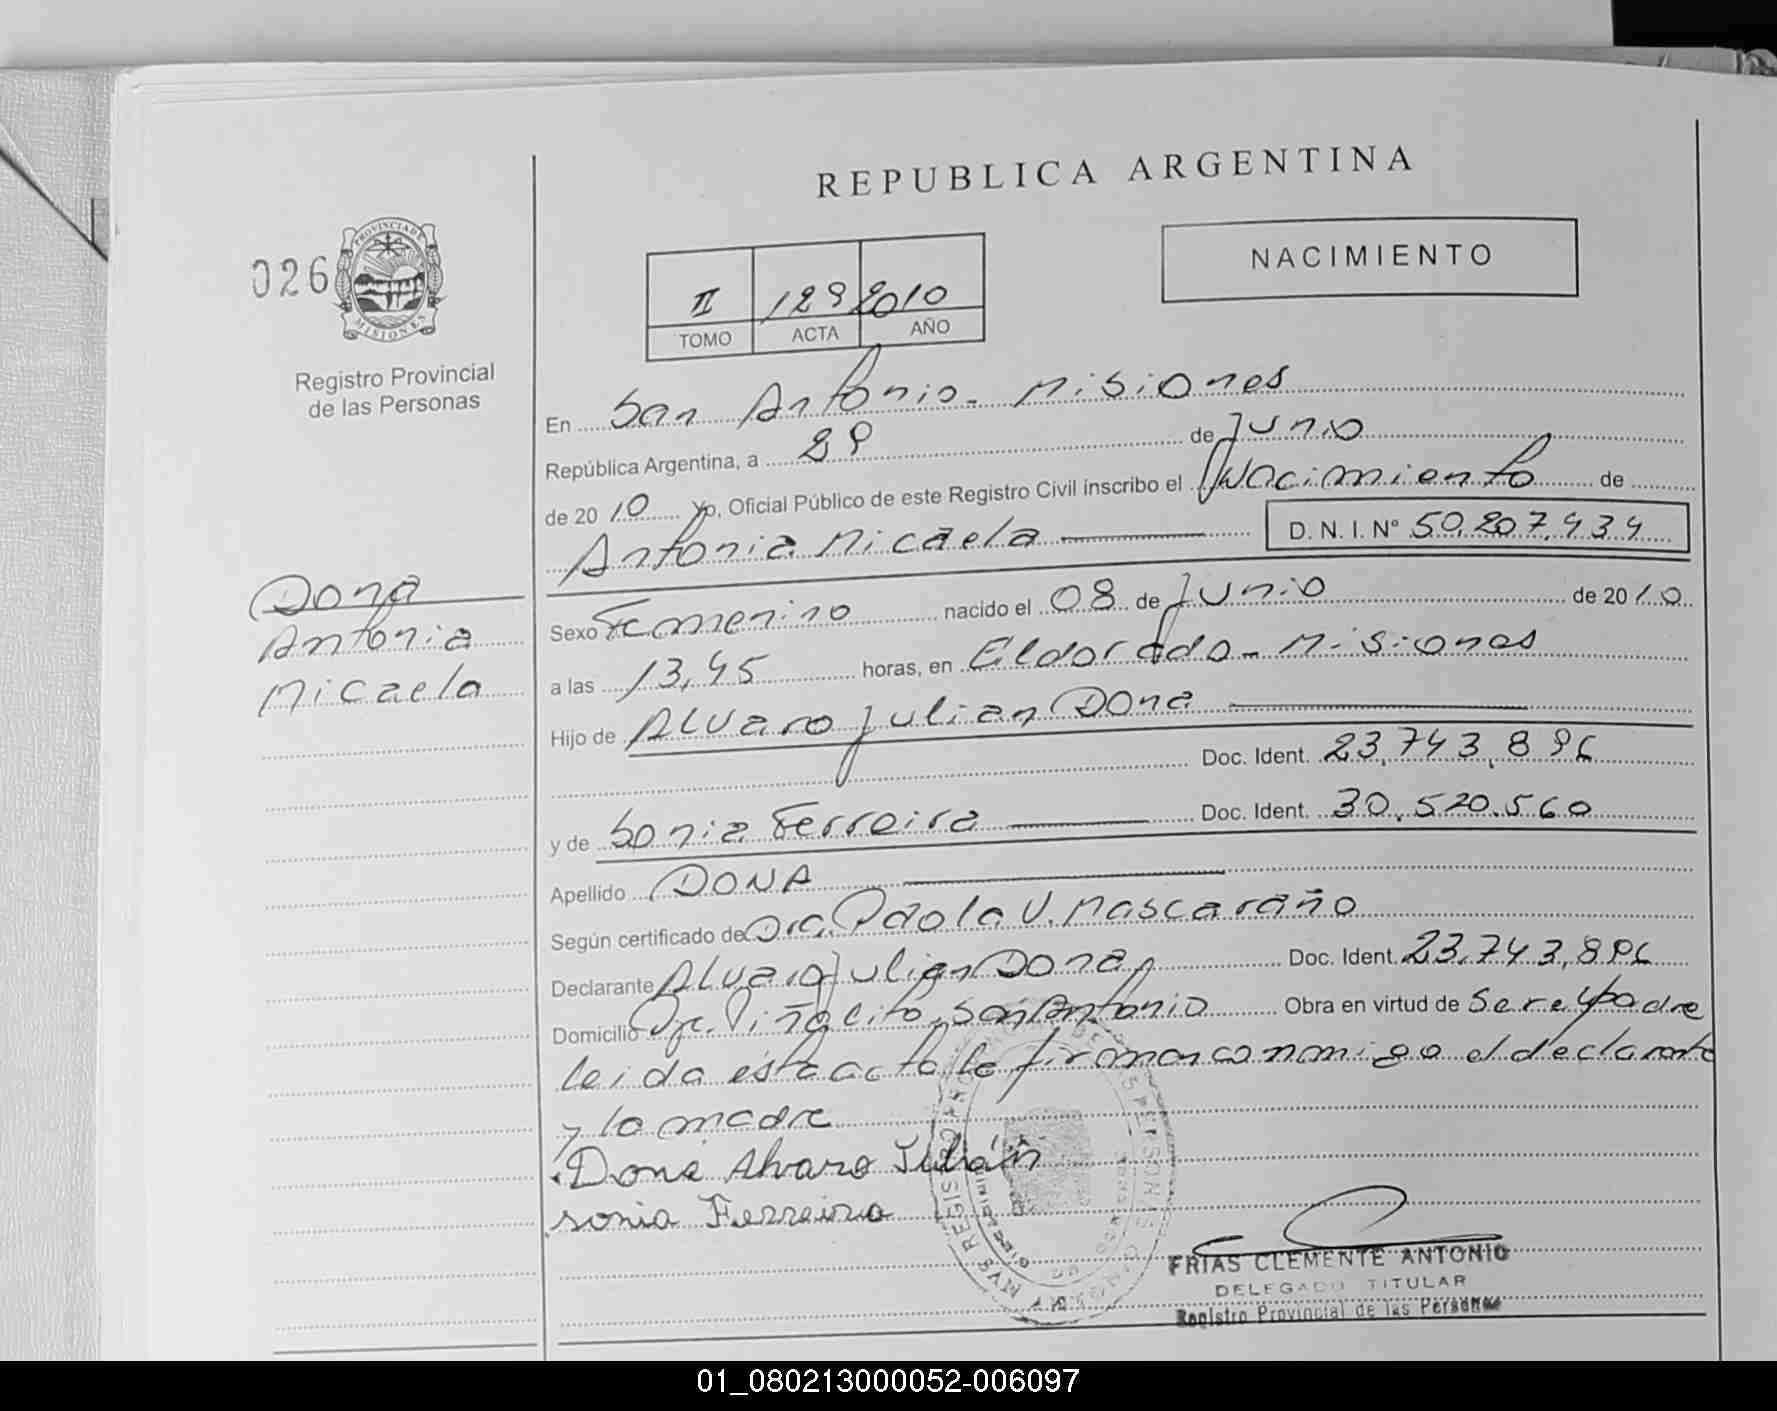 REPUBLICA ARGENTINA
026
PROVINCIA DE
MISIONES
Registro Provincial
de las Personas
NACIMIENTO
II 129 2010
TOMO ACTA AÑO
En San Antonio - Misiones
República Argentina, a 29 de Junio
de 2010 Yo, Oficial Público de este Registro Civil inscribo el Nacimiento de
Antonia Micaela D. N. I. Nº 50.207.434
Dona
Antonia
Micaela
Sexo Femenino nacido el 08 de Junio de 2010
a las 13,45 horas, en Eldorado - Misiones
Hijo de Alvaro Julian Dona
Doc. Ident. 23.743.896
y de Sonia Ferreira Doc. Ident. 30.520.560
Apellido DONA
Según certificado de Dra. Paola V. Mascaraño
Declarante Alvaro Julian Dona Doc. Ident. 23.743.896
Domicilio Piñalito San Antonio Obra en virtud de Ser el padre
leida esta acta la firman conmigo el declarante
y la madre
Dona Alvaro Julián
sonia Ferreira
FRIAS CLEMENTE ANTONIO
DELEGADO TITULAR
Registro Provincial de las Personas
01_080213000052-006097